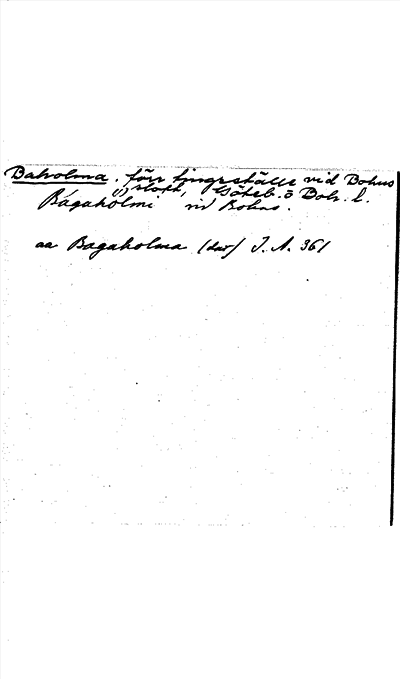 Baholma, förr tingsställe vid Bohus
slott, Göteb. o Boh. l.
Bagaholmi vid Bohus.
aa Bagaholma (dat) J. A. 361